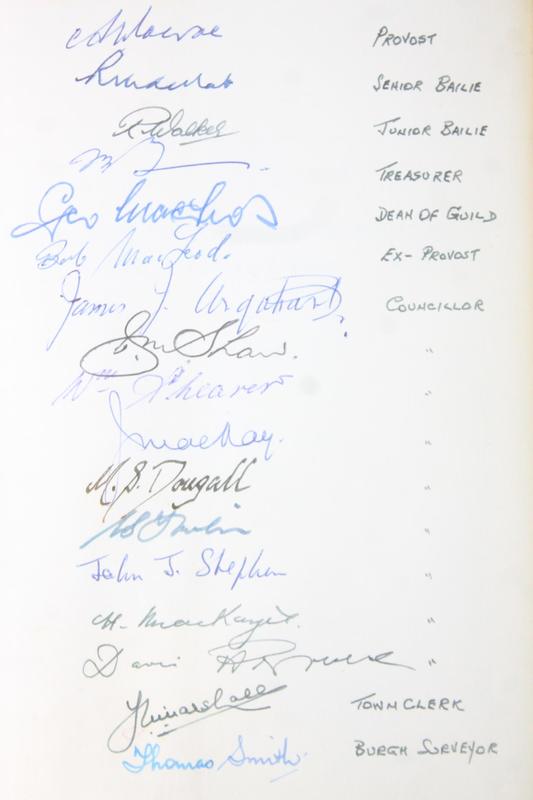 PROVOST
SENIOR BAILIE
R. Walker JUNIOR BAILIE
TREASURER
Geo DEAN OF GUILD
Bob MacLeod. EX-PROVOST
James J. Urquhart. COUNCILLOR
Shaw. "
Wm Shearer "
J MacKay. "
M. S. Dougall "
"
John J. Stephen "
"
David A Bruce "
Marshall TOWN CLERK
Thomas Smith. BURGH SURVEYOR